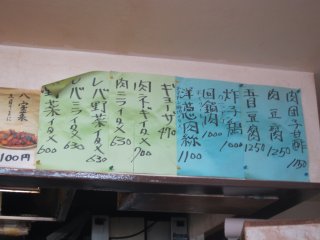 肉団子甘酢
肉豆腐 1250
五目豆腐 1250
炸子鶏 1000
回鍋肉 1000
洋葱肉絲 1100
ギョーザ 490
肉ネギイタメ
肉ニライタメ 630
レバ野菜イタメ 630
レバニライタメ 630
菜イタメ 600
八宝菜
100円